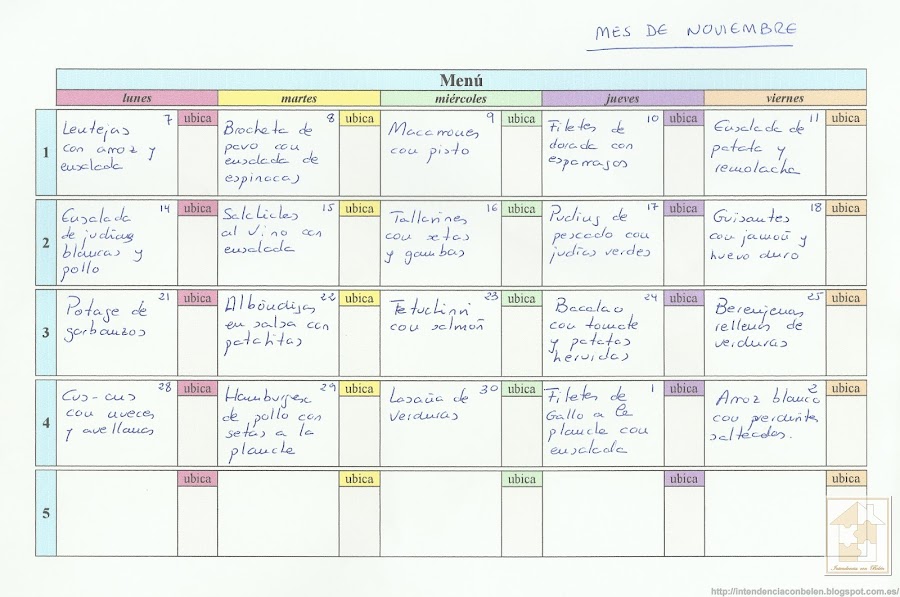 MES DE NOVIEMBRE
Menú
lunes martes miércoles jueves viernes
1
7 ubica
Lentejas
con arroz y
ensalada
8 ubica
Brocheta de
pavo con
ensalada de
espinacas
9 ubica
Macarrones
con pisto
10 ubica
Filetes de
dorada con
esparragos
11 ubica
Ensalada de
patata y
remolacha
2
14 ubica
Ensalada
de judías
blancas y
pollo
15 ubica
Salchichas
al vino con
ensalada
16 ubica
Tallarines
con setas
y gambas
17 ubica
Puding de
pescado con
judías verdes
18 ubica
Guisantes
con jamón y
huevo duro
3
21 ubica
Potage de
garbanzos
22 ubica
Albóndigas
en salsa con
patatitas
23 ubica
Fetuchinni
con salmón
24 ubica
Bacalao
con tomate
y patatas
hervidas
25 ubica
Berenjenas
rellenas de
verduras
4
28 ubica
Cus-cus
con nueces
y avellanas
29 ubica
Hamburgesa
de pollo con
setas a la
plancha
30 ubica
Lasaña de
verduras
1 ubica
Filetes de
Gallo a la
plancha con
ensalada
2 ubica
Arroz blanco
con
salteadas.
5
ubica ubica ubica ubica ubica
Intendencia con Belén
http://intendenciaconbelen.blogspot.com.es/